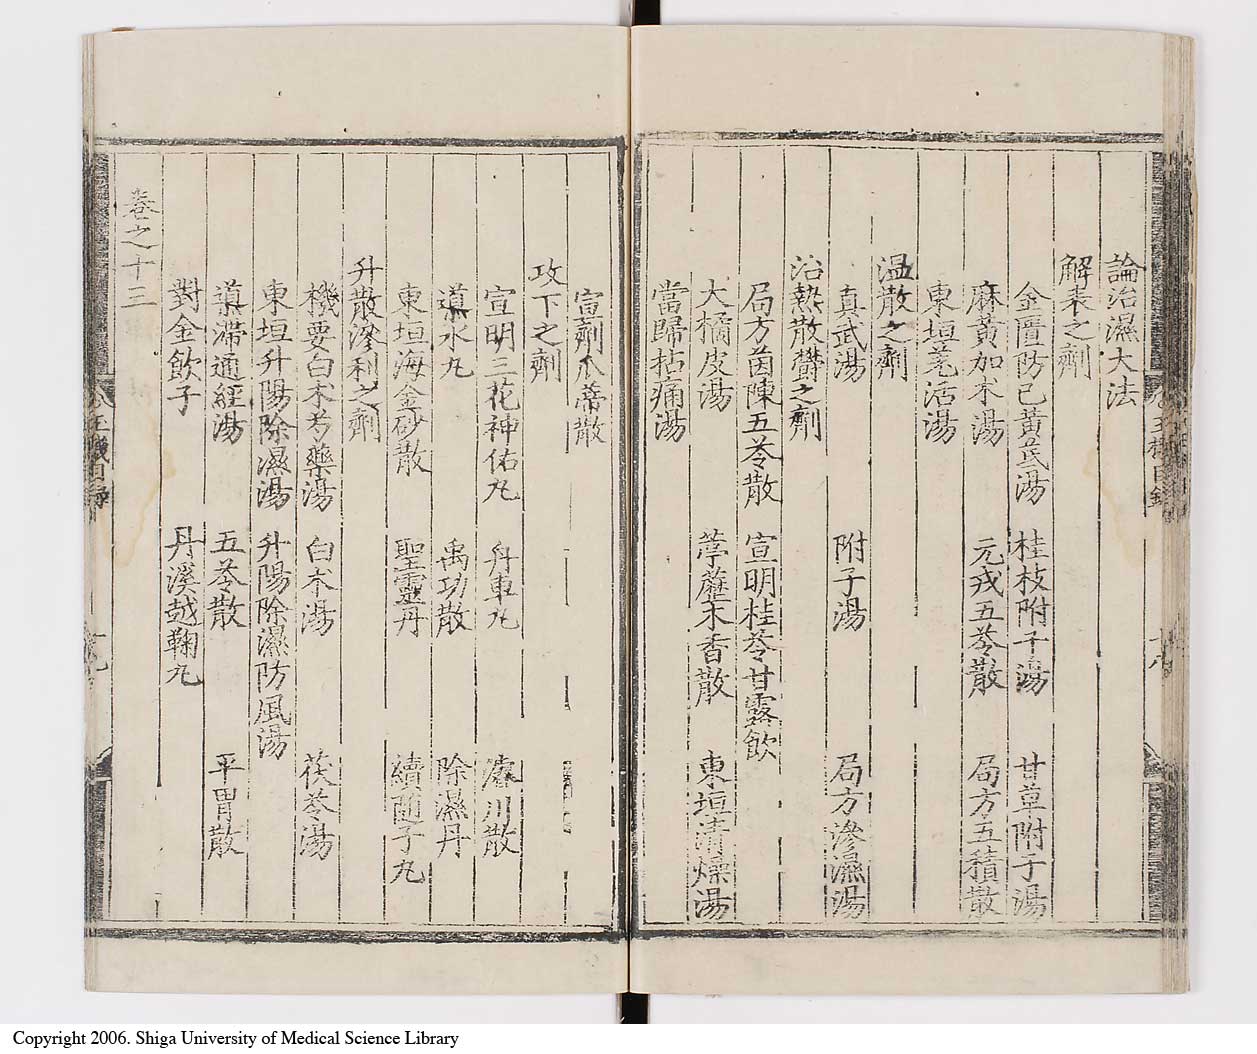 論治濕大法
解表之劑
金匱防己黃芪湯 桂枝附子湯 甘草附子湯
麻黃加朮湯 元戎五苓散 局方五積散
東垣羌活湯
温散之劑
真武湯 附子湯 局方滲濕湯
治熱散欝之劑
局方茵陳五苓散 宣明桂苓甘露飲
大橘皮湯 葶藶木香散 東垣清燥湯
當歸拈痛湯
宣劑瓜蒂散
攻下之劑
宣明三花神佑丸 舟車丸 濬川散
導水丸 禹功散 除濕丹
東垣海金砂散 聖靈丹 續随子丸
升散滲利之劑
機要白朮芍藥湯 白朮湯 茯苓湯
東垣升陽除濕湯 升陽除濕防風湯
導滞通經湯 五苓散 平胃散
對金飲子 丹溪越鞠丸
卷之十三
玉機目録
Copyright 2006. Shiga University of Medical Science Library